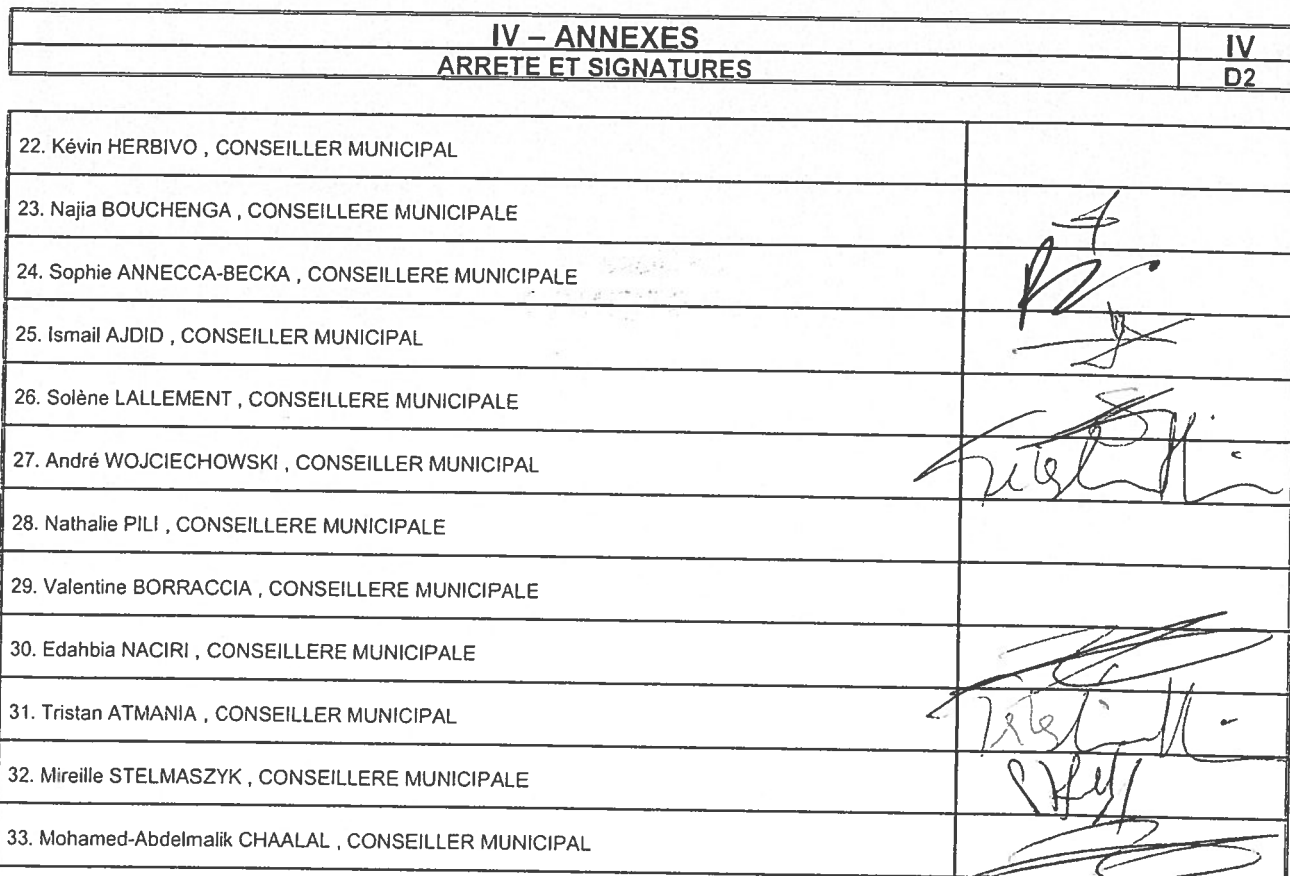 IV – ANNEXES
IV
ARRETE ET SIGNATURES
D2
22. Kévin HERBIVO , CONSEILLER MUNICIPAL
23. Najia BOUCHENGA , CONSEILLERE MUNICIPALE
24. Sophie ANNECCA-BECKA , CONSEILLERE MUNICIPALE
25. Ismail AJDID , CONSEILLER MUNICIPAL
26. Solène LALLEMENT , CONSEILLERE MUNICIPALE
27. André WOJCIECHOWSKI , CONSEILLER MUNICIPAL
28. Nathalie PILI , CONSEILLERE MUNICIPALE
29. Valentine BORRACCIA , CONSEILLERE MUNICIPALE
30. Edahbia NACIRI , CONSEILLERE MUNICIPALE
31. Tristan ATMANIA , CONSEILLER MUNICIPAL
32. Mireille STELMASZYK , CONSEILLERE MUNICIPALE
33. Mohamed-Abdelmalik CHAALAL , CONSEILLER MUNICIPAL